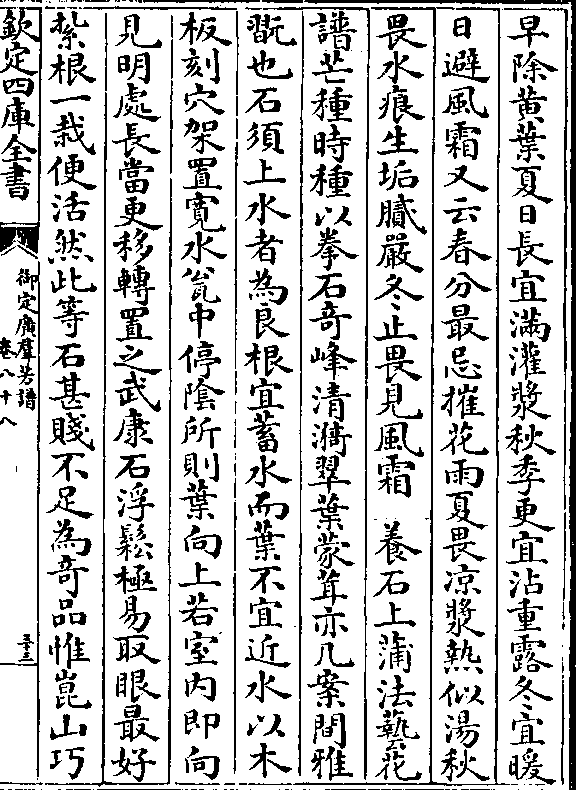 早除黄葉夏日長宜滿灌漿秋季更宜沾重露冬宜暖
日避風霜又云春分最忌摧花雨夏畏凉漿熱似湯秋
畏水痕生垢膩嚴冬止畏見風霜　養石上蒲法藝花
譜芒種時種以拳石竒峰清漪翠葉蒙茸亦几案間雅
翫也石須上水者為良根宜蓄水而葉不宜近水以木
板刻穴架置寛水瓮中停隂所則葉向上若室内即向
見明處長當更移轉置之武康石浮鬆極易取眼最好
紮根一栽便活然此等石甚賤不足為竒品惟崑山巧
欽定四庫全書
御定廣羣芳譜
卷八十八
五十三